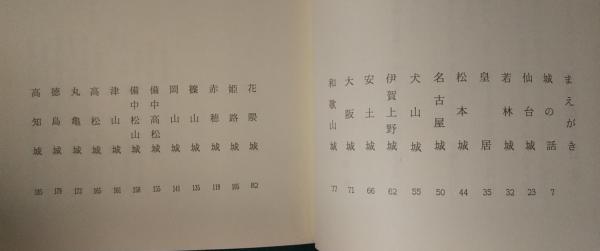 まえがき
城の話 7
仙台城 23
若林城 32
皇居 35
松本城 44
名古屋城 50
犬山城 55
伊賀上野城 62
安土城 66
大阪城 71
和歌山城 77
花隈城 82
姫路城 105
赤穂城 119
篠山城 135
岡山城 141
備中高松城 155
備中松山城 158
津山城 161
高松城 165
丸亀城 172
徳島城 179
高知城 185